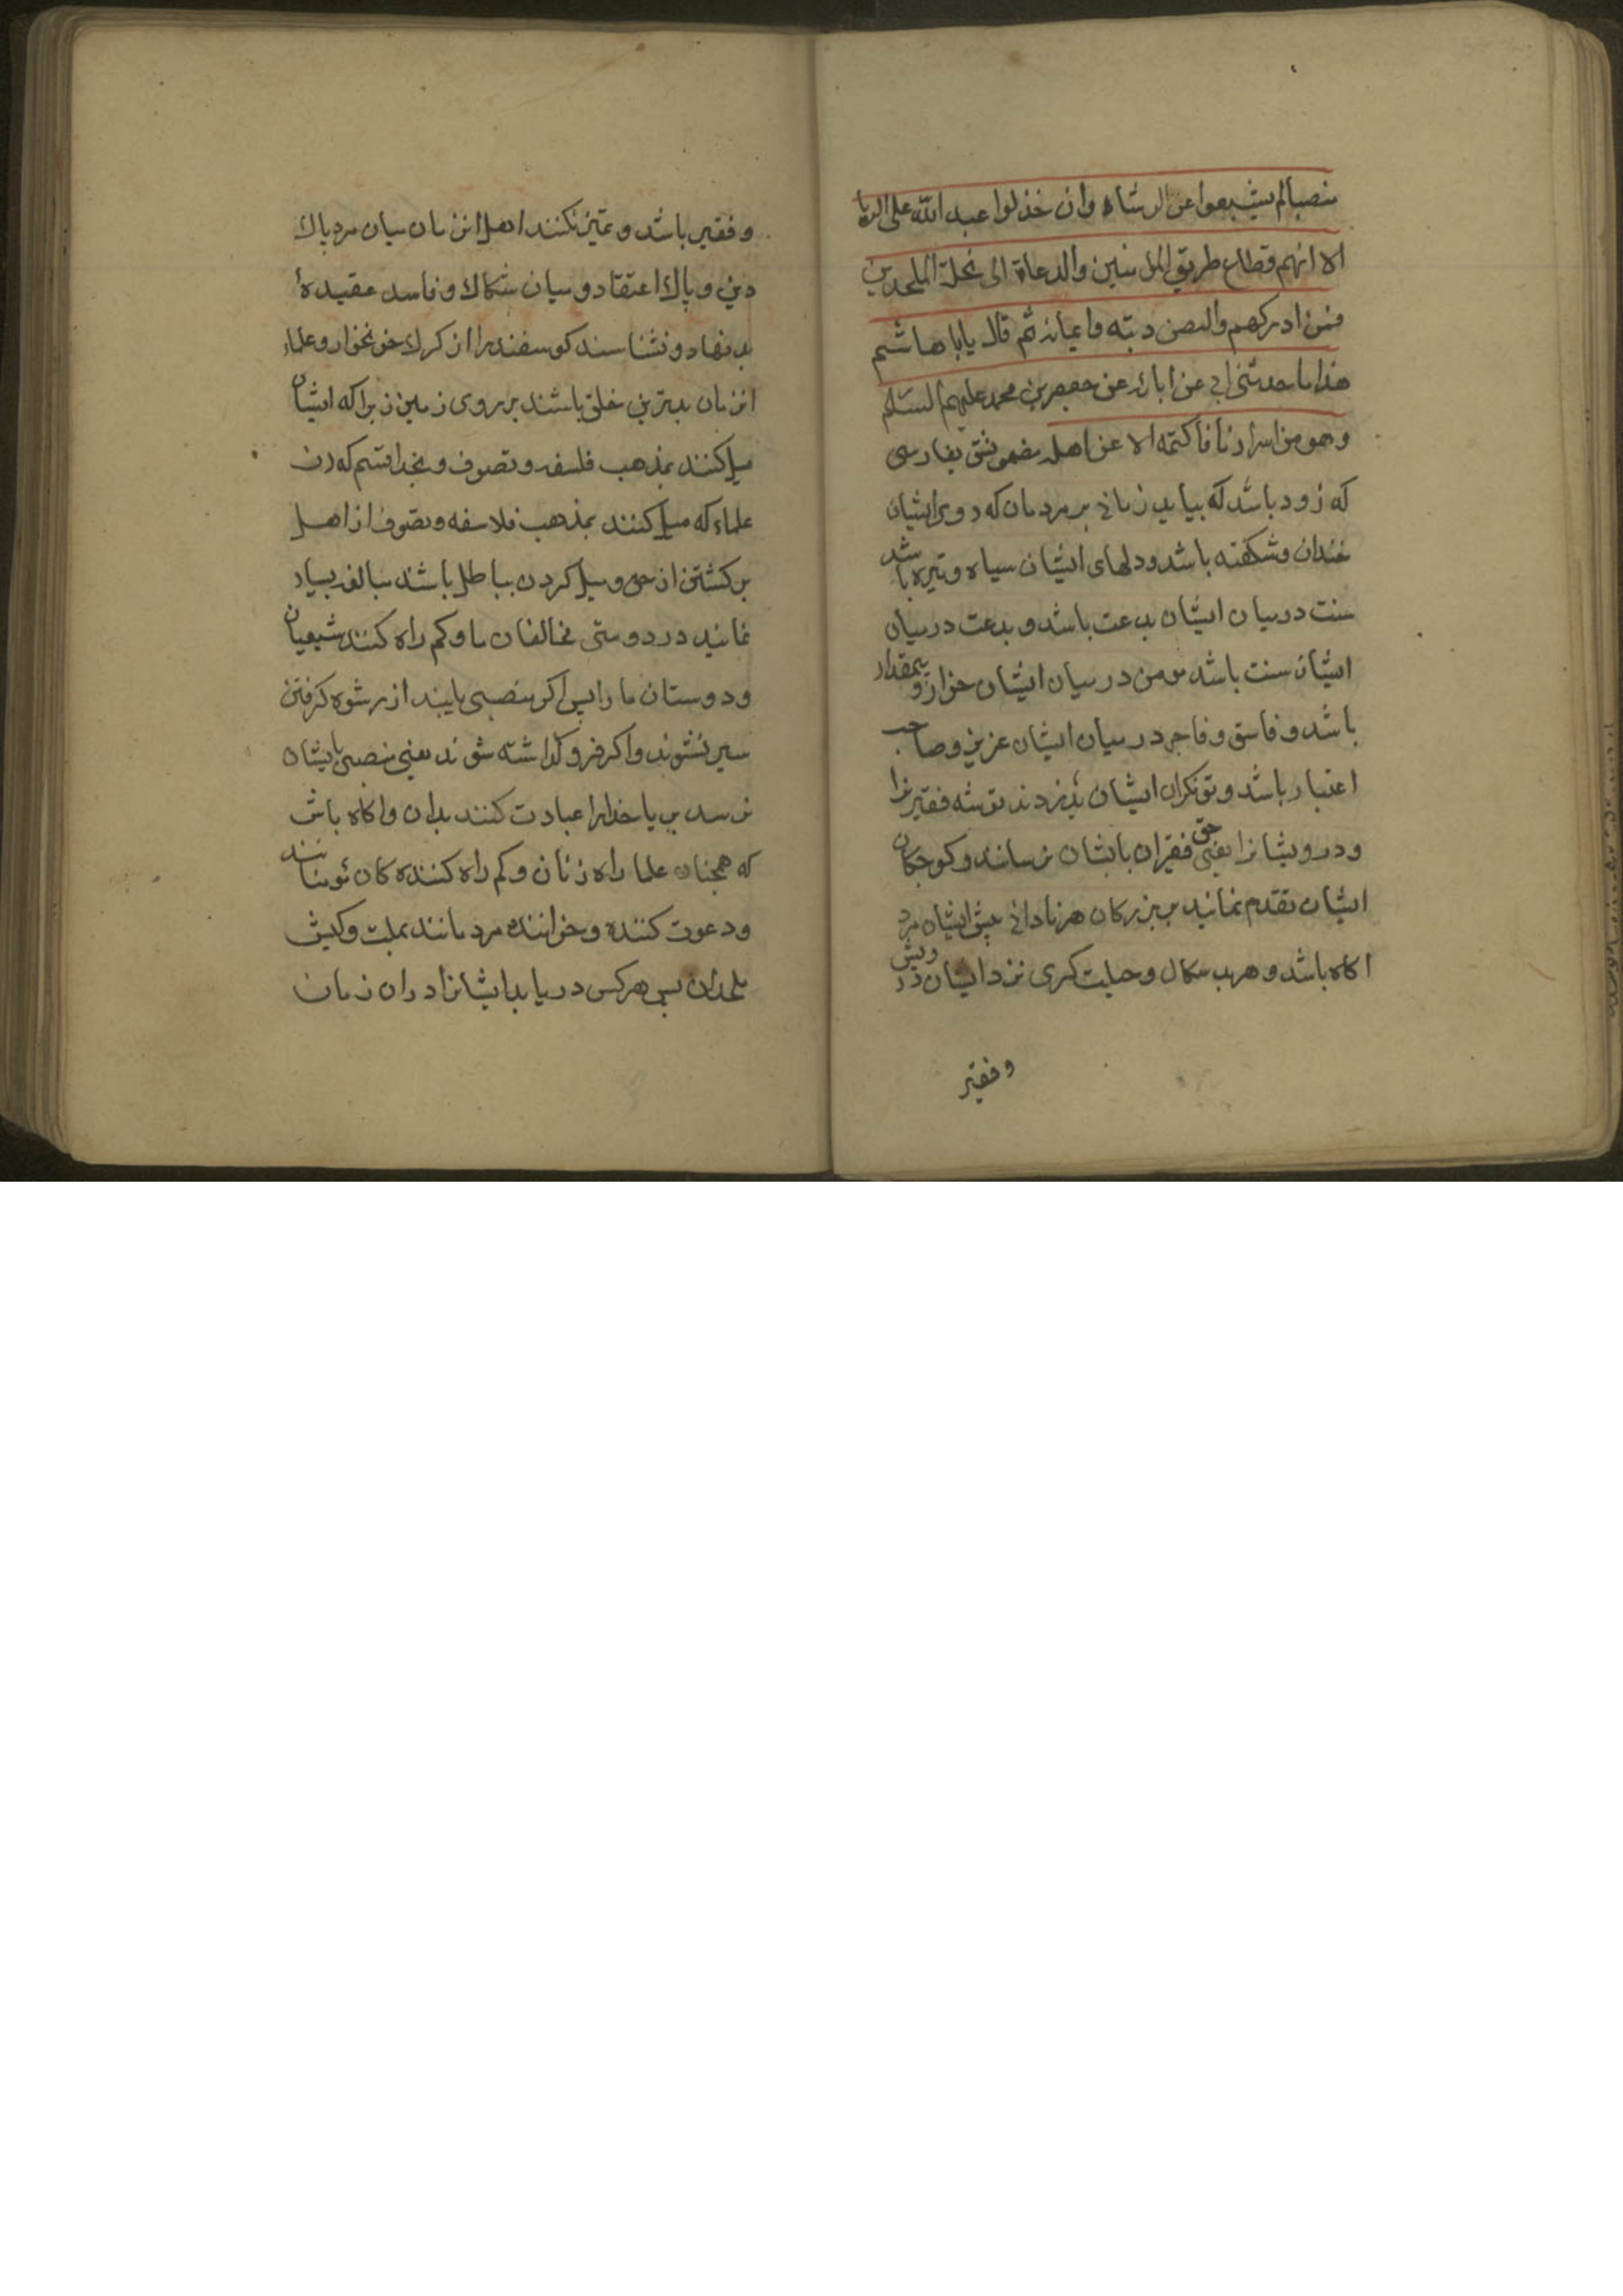 منصبا لم یشبعوا عن الرشاء وان خذلوا عبد الله علی الریا
الا انهم قطاع طریق المؤمنین والدعاة الی نحلة الملحدین
فمن ادرکهم دینه وایمانه ثم قال یا ابا هاشم
هذا ما حدثنی ابی عن ابائه عن جعفر بن محمد علیهم السلم
وهو من اسرارنا فاکتمه الا عن اهله مضمونش بفارسی
که زود باشد که بیاید زمانی بر مردمان که رویهای ایشان
خندان و شکفته باشد و دلهای ایشان سیاه و تیره باشد
سنت در میان ایشان بدعت باشد و بدعت در میان
ایشان سنت باشد مومن در میان ایشان خوار و بیمقدار
باشد و فاسق و فاجر در میان ایشان عزیز و صاحب
اعتبار باشد و تونکران ایشان بدزدند توشه فقیرانرا
و درویشانرا یعنی حق فقیران بایشان نرسانند و کوچکان
ایشان تقدم نمایند بر بزرکان هر نادانی پیش ایشان مرد
اکاه باشد و هر بد سکال و حیلت کری نزد ایشان درویش
و فقیر
و فقیر باشد و تمیز نکنند اهل انزمان میان مرد پاک
دین و پاک اعتقاد و میان شکاک و فاسد عقیدهٔ
بد نهاد و نشناسند کوسفند را از کرک خونخوار و علماء
انزمان بدترین خلق باشند بر روی زمین زیرا که ایشان
میل کنند بمذهب فلسفه و تصوف و بخدا قسم که
علماء که میل کنند بمذهب فلاسفه و تصوف از اهل
برکشتن از حق و میل کردن بباطل باشند مبالغه بسیار
نمایند در دوستی مخالفان ما و کم راه کنند شیعیان
و دوستان ما را پس اکر منصبی یابند از رشوه کرفتن
سیر نشوند و اکر فرو کذاشته شوند یعنی منصبی بایشان
نرسد بریا خدا را عبادت کنند بدان و اکاه باش
که همچنان علما راه زنان و کم راه کننده کان مومنانند
و دعوت کننده و خواننده مردمانند بملت و کیش
ملحدان پس هر کس دریابد ایشانرا در ان زمان